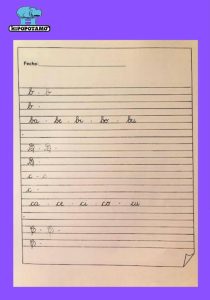 HIPOPOTAMO
Fecha:
b - b
b -
ba - be - bi - bo - bu
B - B -
B
c - c
c -
ca - ce - ci - co - cu